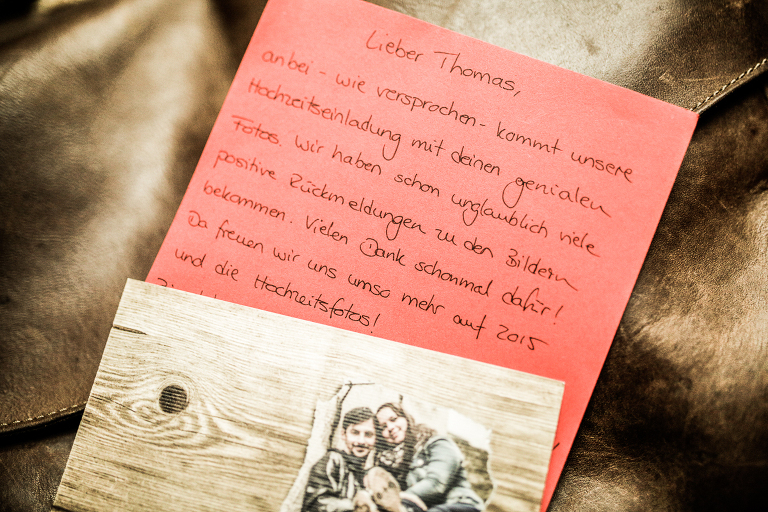 Lieber Thomas,
anbei - wie versprochen - kommt unsere
Hochzeitseinladung mit deinen genialen
Fotos. Wir haben schon unglaublich viele
positive Rückmeldungen zu den Bildern
bekommen. Vielen Dank schonmal dafür!
Da freuen wir uns umso mehr auf 2015
und die Hochzeitsfotos!